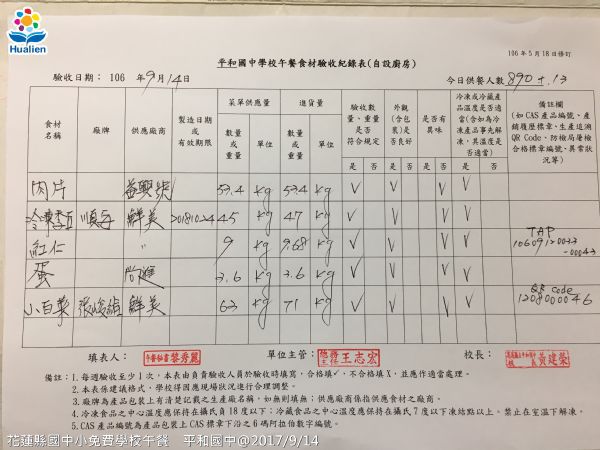 Hualien
106 年 5 月 18 日修訂
平和國中學校午餐食材驗收紀錄表(自設廚房)
驗收日期： 106 年 9 月 14 日
今日供餐人數 890 + 13
食材名稱 廠牌 供應廠商 製造日期或有效期限 菜單供應量 數量或重量 單位 進貨量 數量或重量 單位 驗收數量、重量是否符合規定 是 否 外觀(含包裝)是否良好 是 否 是否有異味 是 否 冷凍或冷藏產品溫度是否適當(含如為冷凍產品事先解凍，其溫度是否適當) 是 否 備註欄(如 CAS 產品編號、產銷履歷標章、生產追溯 QR Code、防檢局屠檢合格標章編號、異常狀況等)
肉片 益興號 53.4 kg 53.4 kg V V V V
鮮美 20181024 45 kg 47 kg V V V V
紅仁 " 9 kg 9.68 kg V V V TAP 10609120033-00043
蛋 3.6 kg 3.6 kg V V V
小白菜 鮮美 63 kg 71 kg V V V QR code 1208000046
填表人： 午餐秘書 黎秀麗 單位主管： 總務主任 王志宏 校長： 黃建榮
備註：1.每週驗收至少 1 次，本表由負責驗收人員於驗收時填寫，合格填✓，不合格填 X，並應作適當處理。
2.本表係建議格式，學校得因應現場狀況進行合理調整。
3.廠牌為產品包裝上有清楚記載之生產廠名稱，如無則填無；供應廠商係指供應食材之廠商。
4.冷凍食品之中心溫度應保持在攝氏負 18 度以下；冷藏食品之中心溫度應保持在攝氏 7 度以下凍結點以上。禁止在室溫下解凍。
5.CAS 產品編號為產品包裝上 CAS 標章下沿之 6 碼阿拉伯數字編號。
花蓮縣國中小免費學校午餐 平和國中@2017/9/14